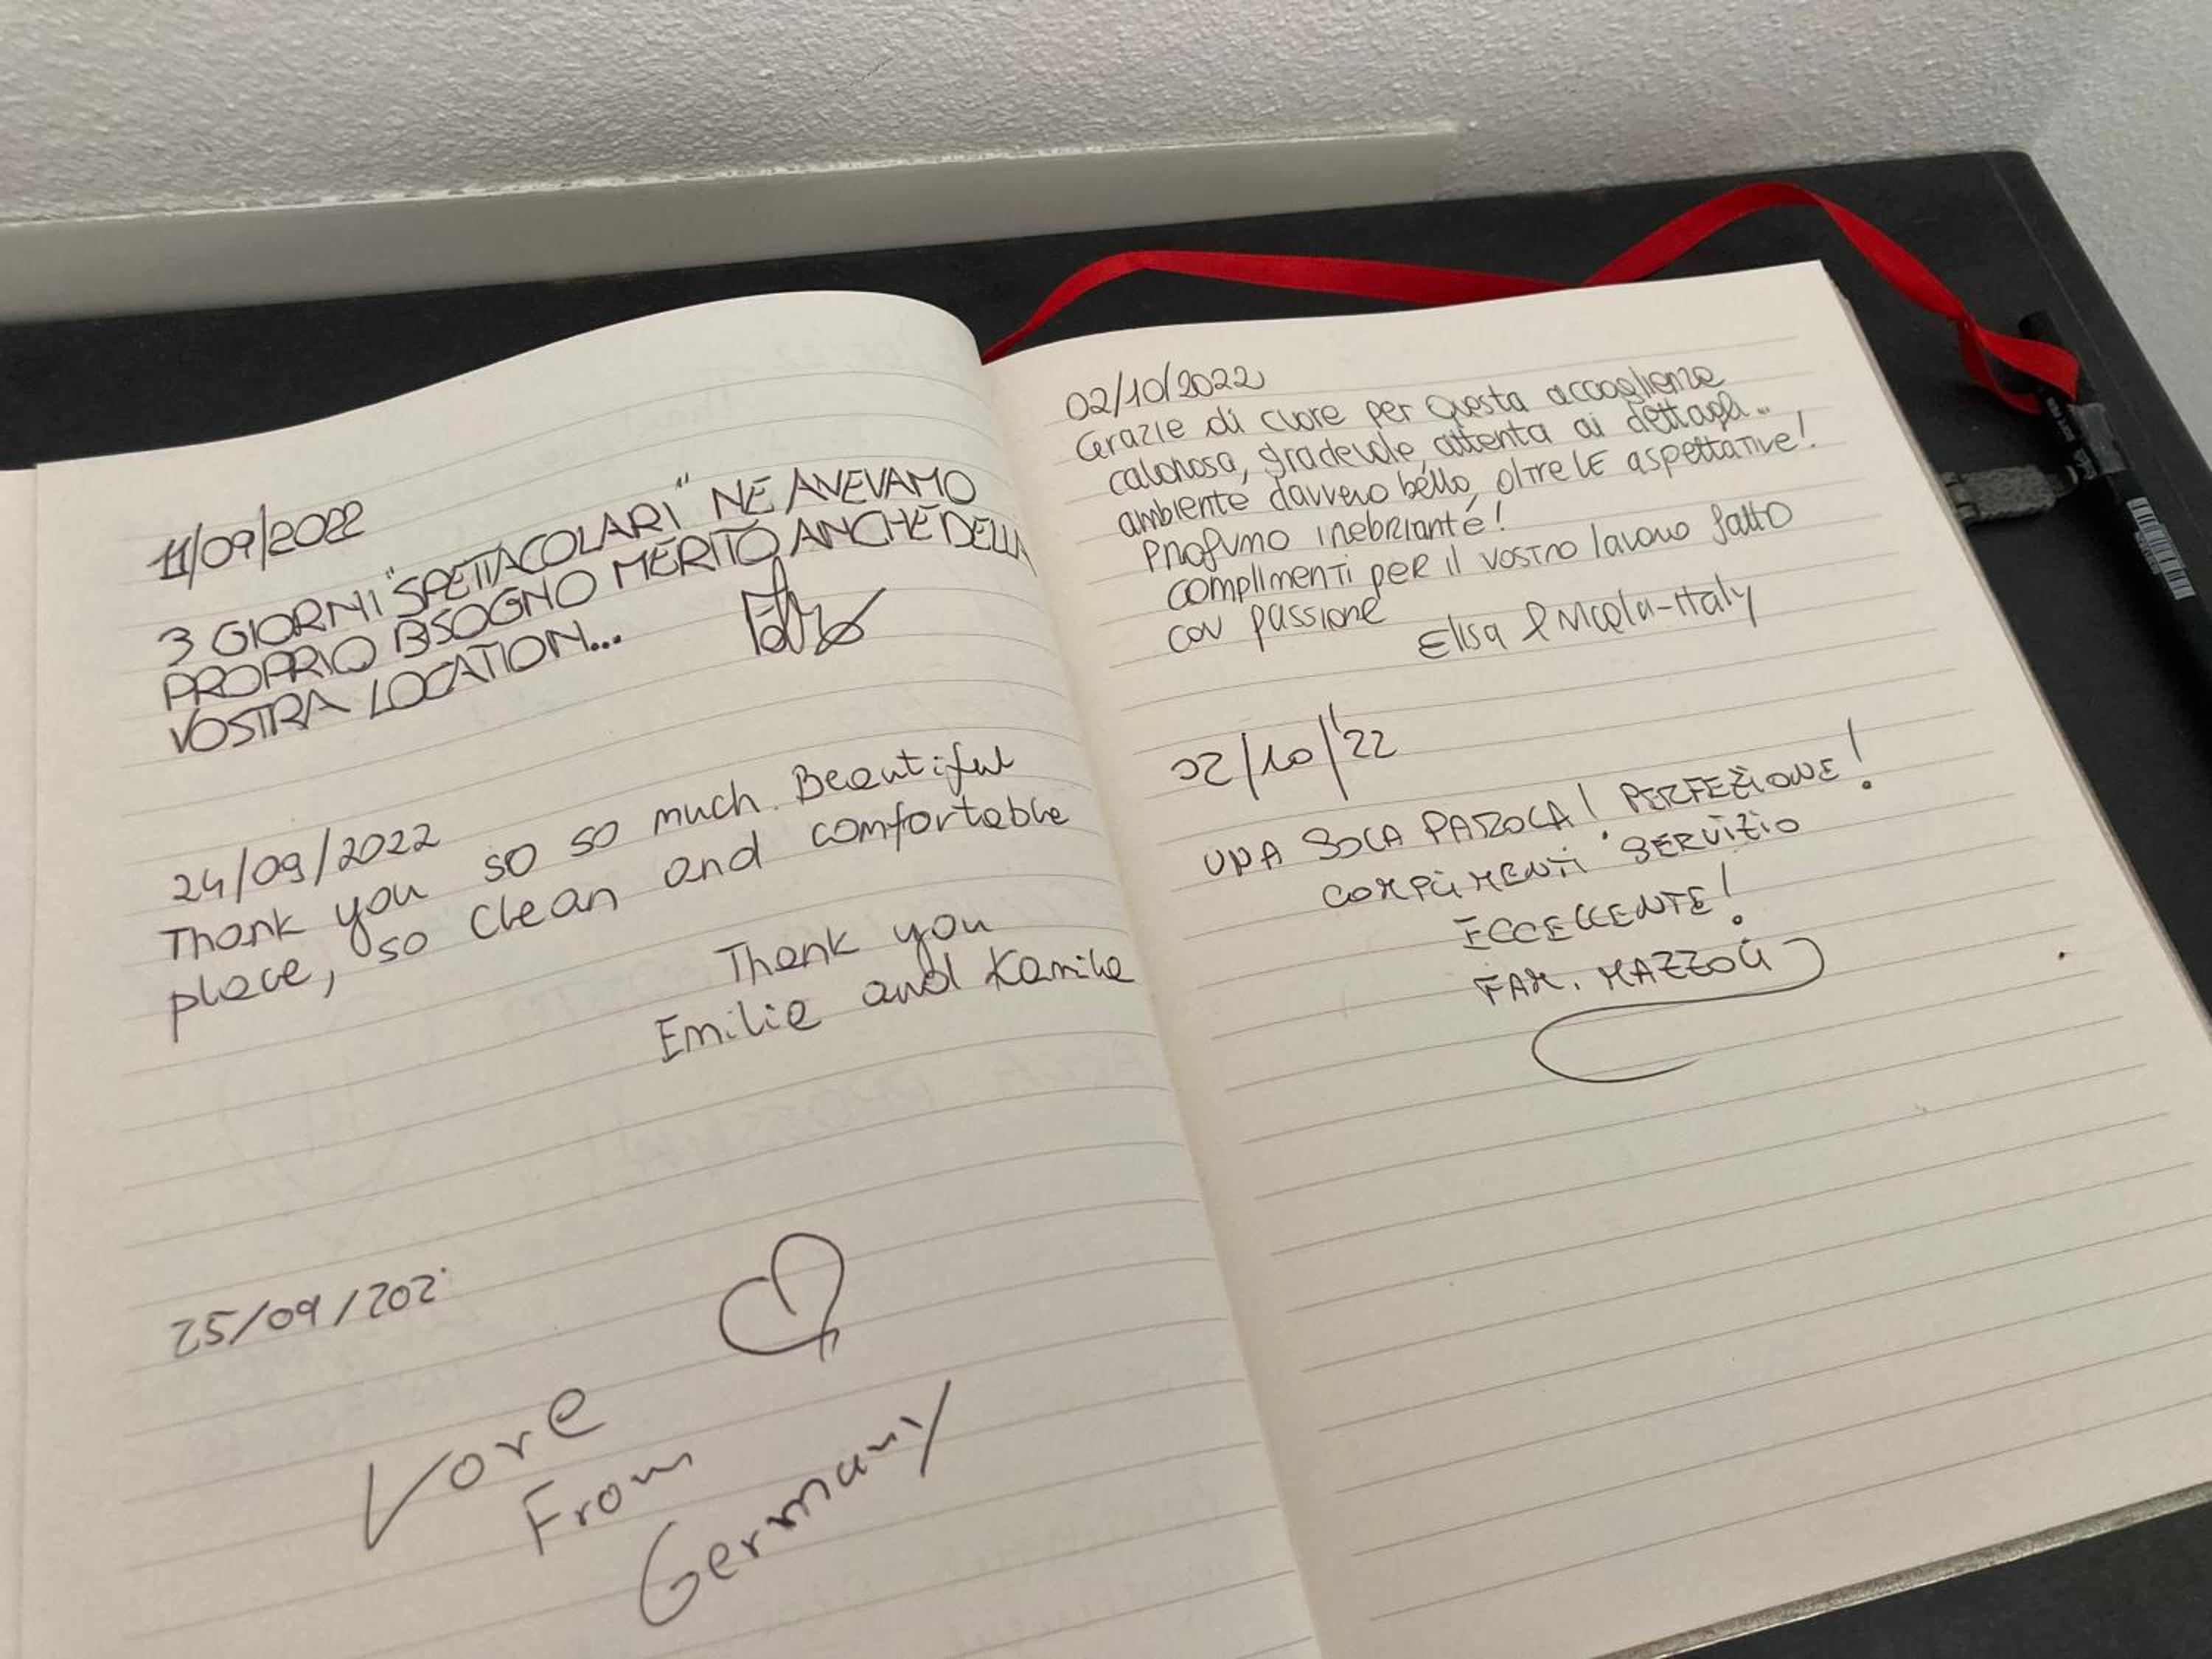 11/09/2022
3 GIORNI "SPETTACOLARI" NE AVEVAMO
PROPRIO BISOGNO MERITO ANCHE DELLA
VOSTRA LOCATION...
24/09/2022
Thank you so so much. Beautiful
place, so clean and comfortable
Thank you
Emilie and Kamila
25/09/202
Love
From
Germany
02/10/2022
Grazie di cuore per questa accoglienza
calorosa, gradevole, attenta ai dettagli..
ambiente davvero bello, oltre le aspettative!
Profumo inebriante!
complimenti per il vostro lavoro fatto
con passione
Elisa & Nicola-Italy
02/10/'22
UNA SOLA PAROLA! PERFEZIONE!
COMPLIMENTI SERVIZIO
ECCELLENTE!
FAM. MAZZOLI